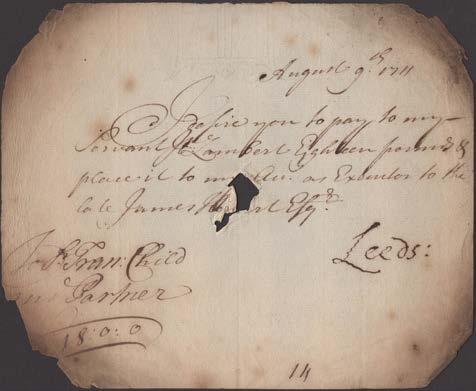 August 9th 1711
I desire you to pay to my
Servant Lambert Eighteen pounds &
place it to my Acc. as Executor to the
late James Esqr.
To Sr. Fran: Child
and Partner
Leeds:
18:0:0
14